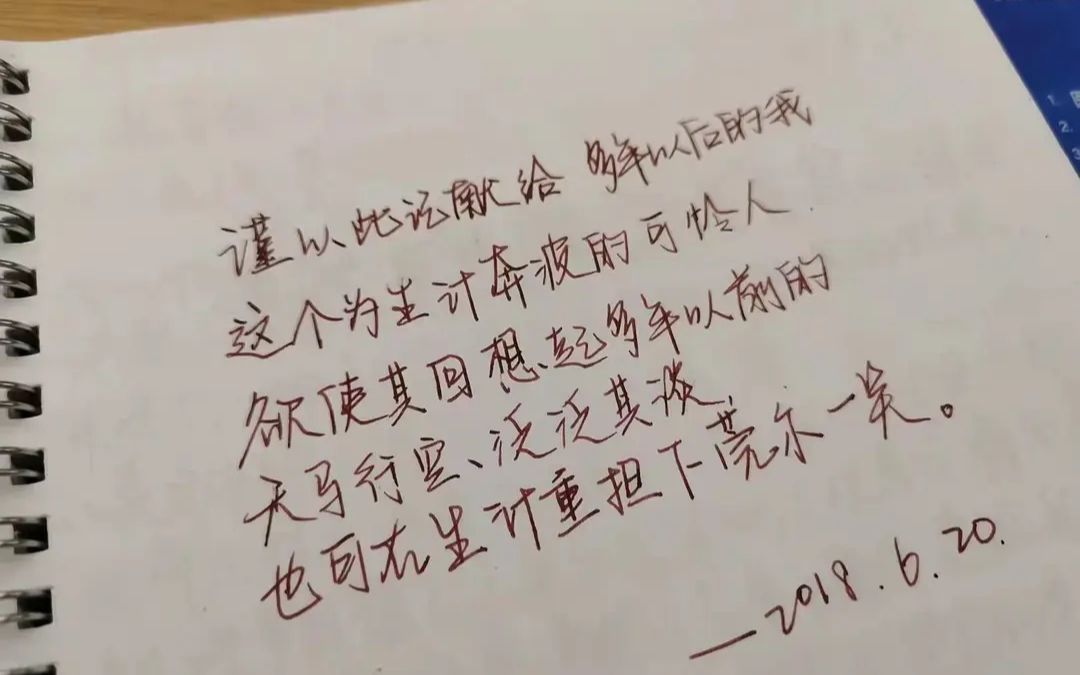 谨以此记献给 多年以后的我
这个为生计奔波的可怜人
欲使其回想起多年以前的
天马行空、泛泛其谈，
也可在生计重担下莞尔一笑。
—2018.6.20.
1.
2.
3